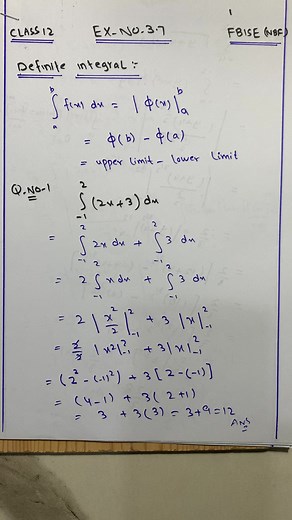 CLASS 12 EX-NO.3.7 FBISE (NBF)
Definite integral :-
∫_a^b f(x) dx = |ϕ(x)|_a^b
= ϕ(b) - ϕ(a)
= upper limit - lower limit
Q.NO-1 ∫_{-1}^2 (2x+3) dx
= ∫_{-1}^2 2x dx + ∫_{-1}^2 3 dx
= 2 ∫_{-1}^2 x dx + ∫_{-1}^2 3 dx
= 2 |x²/2|_{-1}^2 + 3 |x|_{-1}^2
= 2/2 |x²|_{-1}^2 + 3|x|_{-1}^2
= (2² - (-1)²) + 3[2 - (-1)]
= (4-1) + 3(2+1)
= 3 + 3(3) = 3+9 = 12
Ans